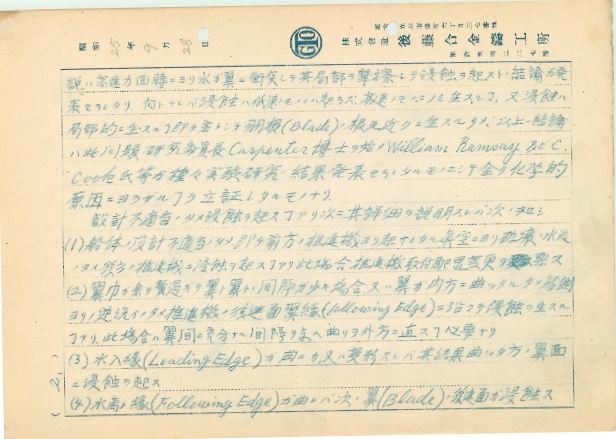 昭和 25 年 9 月 28 日
GTO
株式会社 後藤合金鑄工所
説ハ高速力回時ニヨリ水ガ翼ニ衝突シテ其局部ヲ撃擦シテ浸蝕ヲ起スト結論ガ発
表セラレタリ 何トナレバ浸蝕ハ低速ノモノニハ起ラズ、高速ノモノニノミ生ズル了、又浸蝕ハ
局部的ニ生ズル了即チ主トシテ羽根(Blade)ノ根元近クニ生ズルタメ、以上ノ結論
ハ此ノ問題研究委員長Carpenter博士ヲ始メWilliam Ramsay 及ビ C.
Cook氏等ガ種々実験研究ノ結果発表セラレタルモノニシテ全ク化学的
原因ニヨラザル了ヲ立証シタルモノナリ
設計不適当ノタメ浸蝕ヲ起ス了アリ次ニ其詳細ヲ説明スレバ次ノ如シ
(1)船体ノ設計不適当ノタメ即チ前方ノ推進機ヨリ起サレタル真空ニヨリ
ノタメ後方ノ推進機ニ浸蝕ヲ起ス了アリ此場合推進機取付配置変更ヲ要ス
(2)翼巾ガ余リ廣過ギテ翼ト翼トノ間隔ガ少キ場合又ハ翼ガ内方ニ曲ッタルタメ
ヨリノ逆流インタメ推進機ノ後進面翼縁(Following Edge)ニ沿フテ浸蝕ノ生ズル
了アリ、此場合ハ翼間ニ充分ナル間隔ヲ与ヘ曲リヲ外方ニ直ス了必要ナリ
(3)水入縁(Leading Edge)ガ曲ニカ又ハ変形スレバ其結果曲ッタ方ノ翼面
ニ浸蝕ヲ起ス
(4)水離ノ縁(Following Edge)ガ曲レバ次ノ翼(Blade)ノ後進面ガ浸蝕ス
(2)